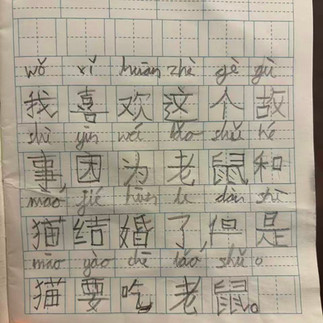 wǒ xǐ huān zhè gè gù
我喜欢这个故
shì yīn wèi lǎo shǔ hé
事,因为老鼠和
māo jié hūn le dàn shì
猫结婚了,但是
māo yào chī lǎo shǔ。
猫要吃老鼠。